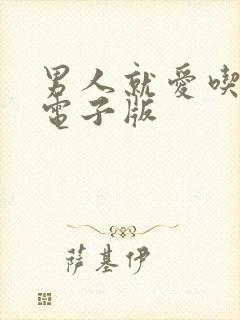 男人就愛喫
電子版
萨基伊